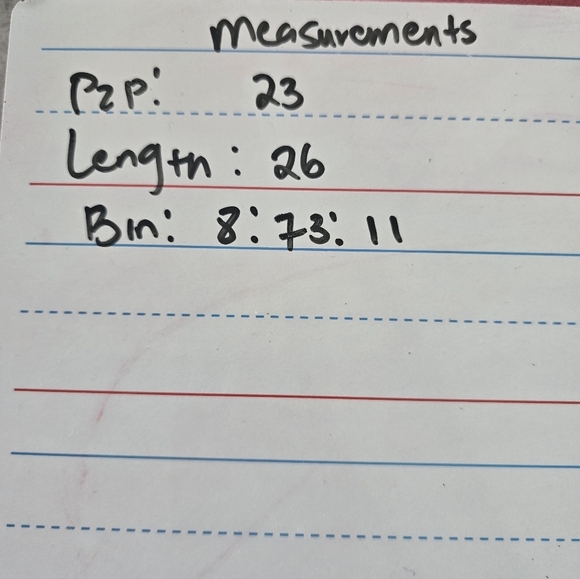 Measurements
P2P: 23
Length: 26
Bin: 8:73:11